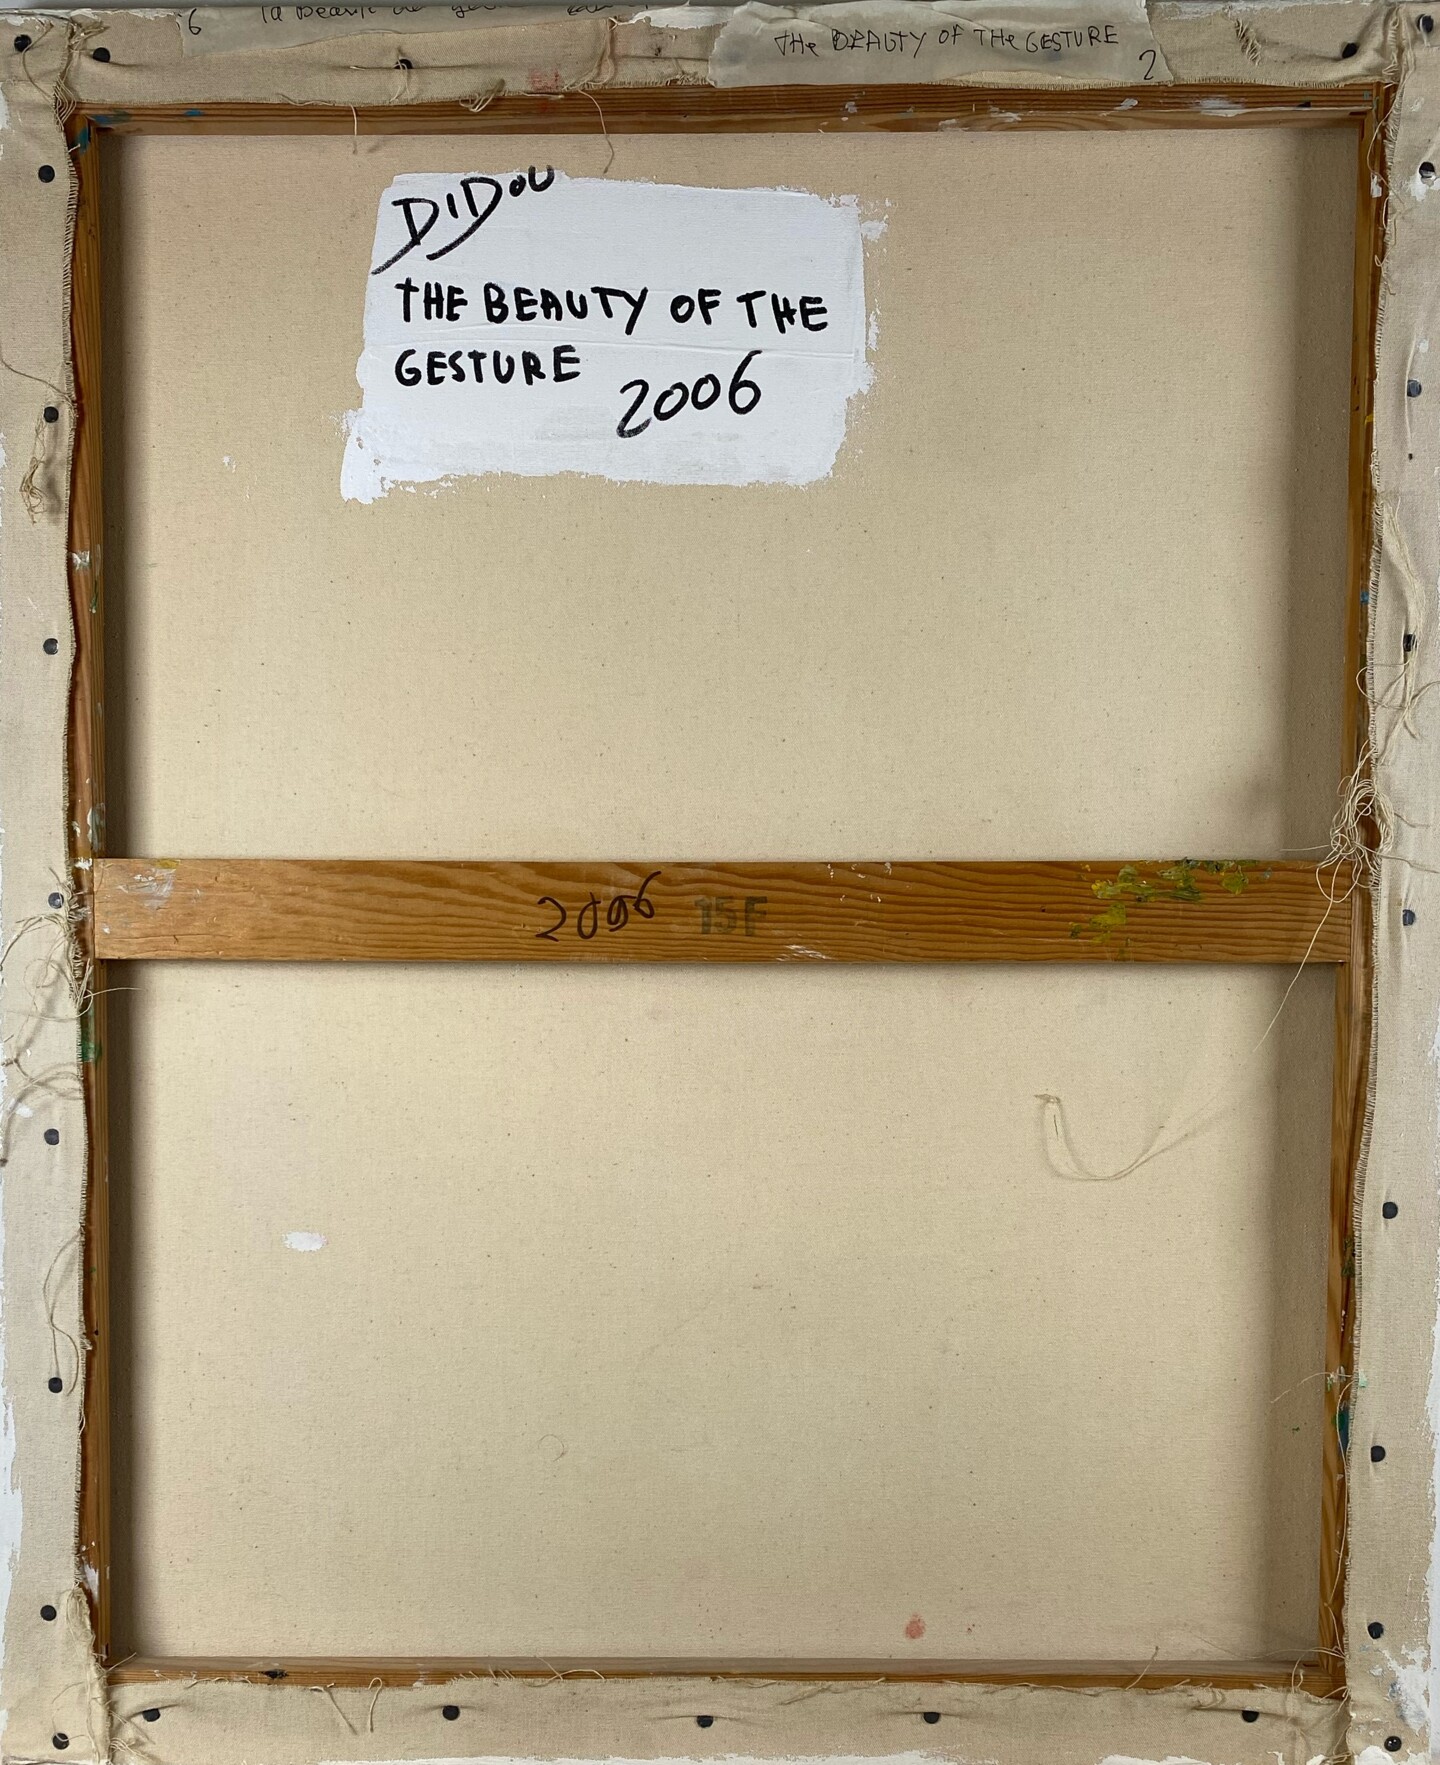 6 la Beauté du geste
THe BEAUTY OF THe GESTURE
2
DIDOU
THE BEAUTY OF THE
GESTURE 2006
2006 15F